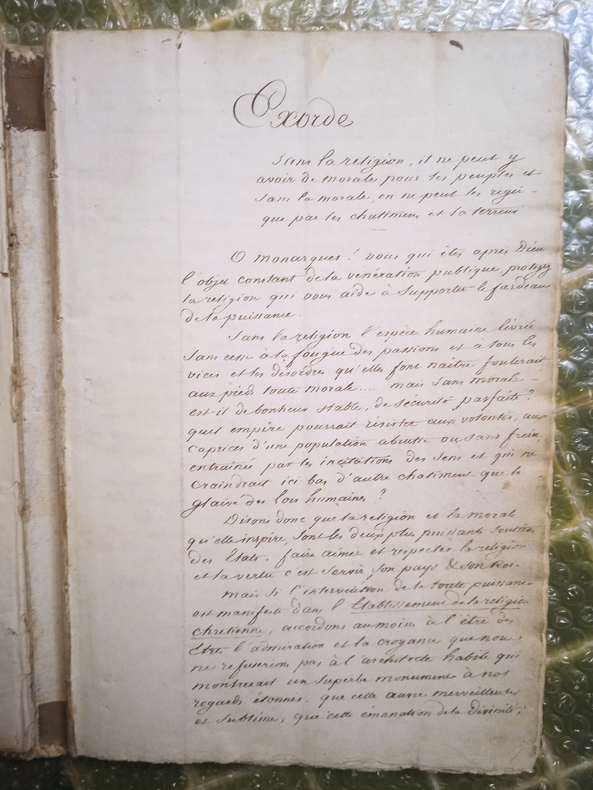 Exorde
Sans la religion, il ne peut y
avoir de morale pour les peuples et
sans la morale, on ne peut les régir
que par les chatimens et la terreur
O monarques! vous qui êtes après Dieu
l'objet constant de la vénération publique, protegez
la religion qui vous aide à supporter le fardeau
de la puissance.
Sans la religion l'espèce humaine livrée
sans cesse à la fougue des passions et à tous les
vices et les désordres qu'elles font naître foulerait
aux pieds toute morale.... mais sans morale
est il de bonheur stable, de sécurité parfaite?
quel empire pourrait résister aux volontés, aux
caprices d'une population abrutie ou sans frein,
entrainée par les incitations des sens et qui ne
craindrait ici bas d'autre chatiment que le
glaive des lois humaines?
Disons donc que la religion et la morale
qu'elle inspire, sont les deux plus puissants soutiens
des Etats. faire aimer et respecter la religion
et la vertu c'est servir son pays & son Roi.
mais si l'intervention de la toute puissance
est manifeste dans l'Etablissement de la religion
chretienne, accordons au moins à l'être des
Etres l'admiration et la croyance que nous
ne refuserions pas à l'architecte habile qui
montrerait un superbe monument à nos
regards étonnés. que cette œuvre merveilleuse
et sublime, que cette émanation de la Divinité,